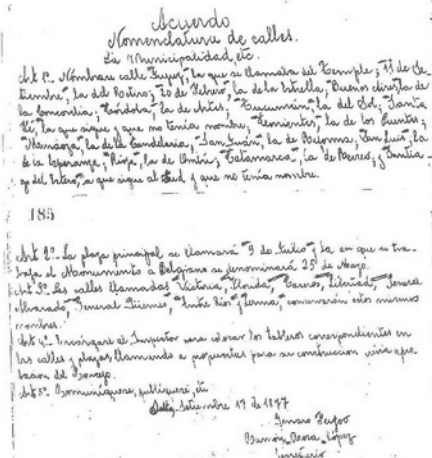 Acuerdo
Nomenclatura de calles.
La Municipalidad, etc.
Art 1º. Nómbrase calle "Jujuy", la que se llamaba del Temple; "13 de Se-
tiembre", la del Retiro; "20 de Febrero", la de la Estrella; "Buenos Aires", la de
la Concordia; "Córdoba", la de Artes; "Tucumán", la del Sol; "Santa
Fé", la que sigue y que no tenía nombre; "Corrientes", la de los Puentes;
"Mendoza", la de la Candelaria; "San Juan", la de Reforma; "San Luis", la
de la Esperanza; "Rioja", la de Ombú; "Catamarca", la de Recreo; y "Santia-
go del Estero", la que sigue al Sud y que no tenía nombre.
185
Art 2º. La plaza principal se llamará "9 de Julio" y la en que se tra-
baja el Monumento a Belgrano se denominará "25 de Mayo".
Art 3º. Las calles llamadas "Victoria", "Florida", "Caseros", "Libertad", "General
Alvarado", "General Güemes", "Entre Ríos" y "Lerma", conservarán estos mismos
nombres.
Art 4º. Encárgase al Inspector para colocar los tableros correspondientes en
las calles y plazas llamando a propuestas para su construcción previa apro-
bación del Concejo.
Art 5º. Comuníquese, publíquese, etc
Salta, Setiembre 17 de 1877
Ramón López
Secretario